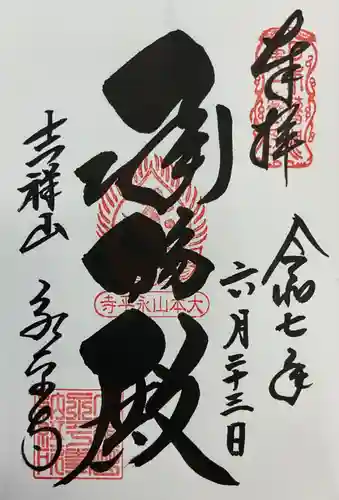 奉拝
令和七年
六月二十三日
承陽殿
大本山永平寺
吉祥山 永平寺